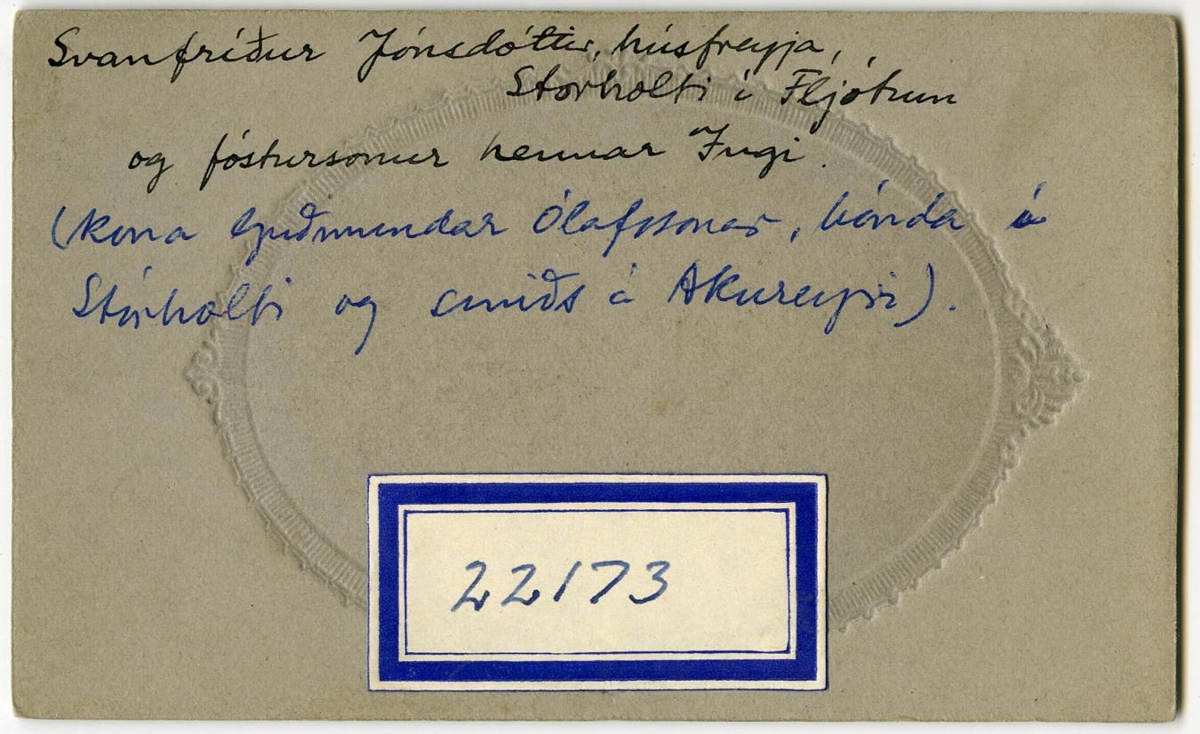 Svanfríður Jónsdóttir, húsfreyja,
Stórholti í Fljótum
og fóstursonur hennar Ingi.
(kona Guðmundar Ólafssonar, bónda á
Stórholti og smiðs á Akureyri).
22173